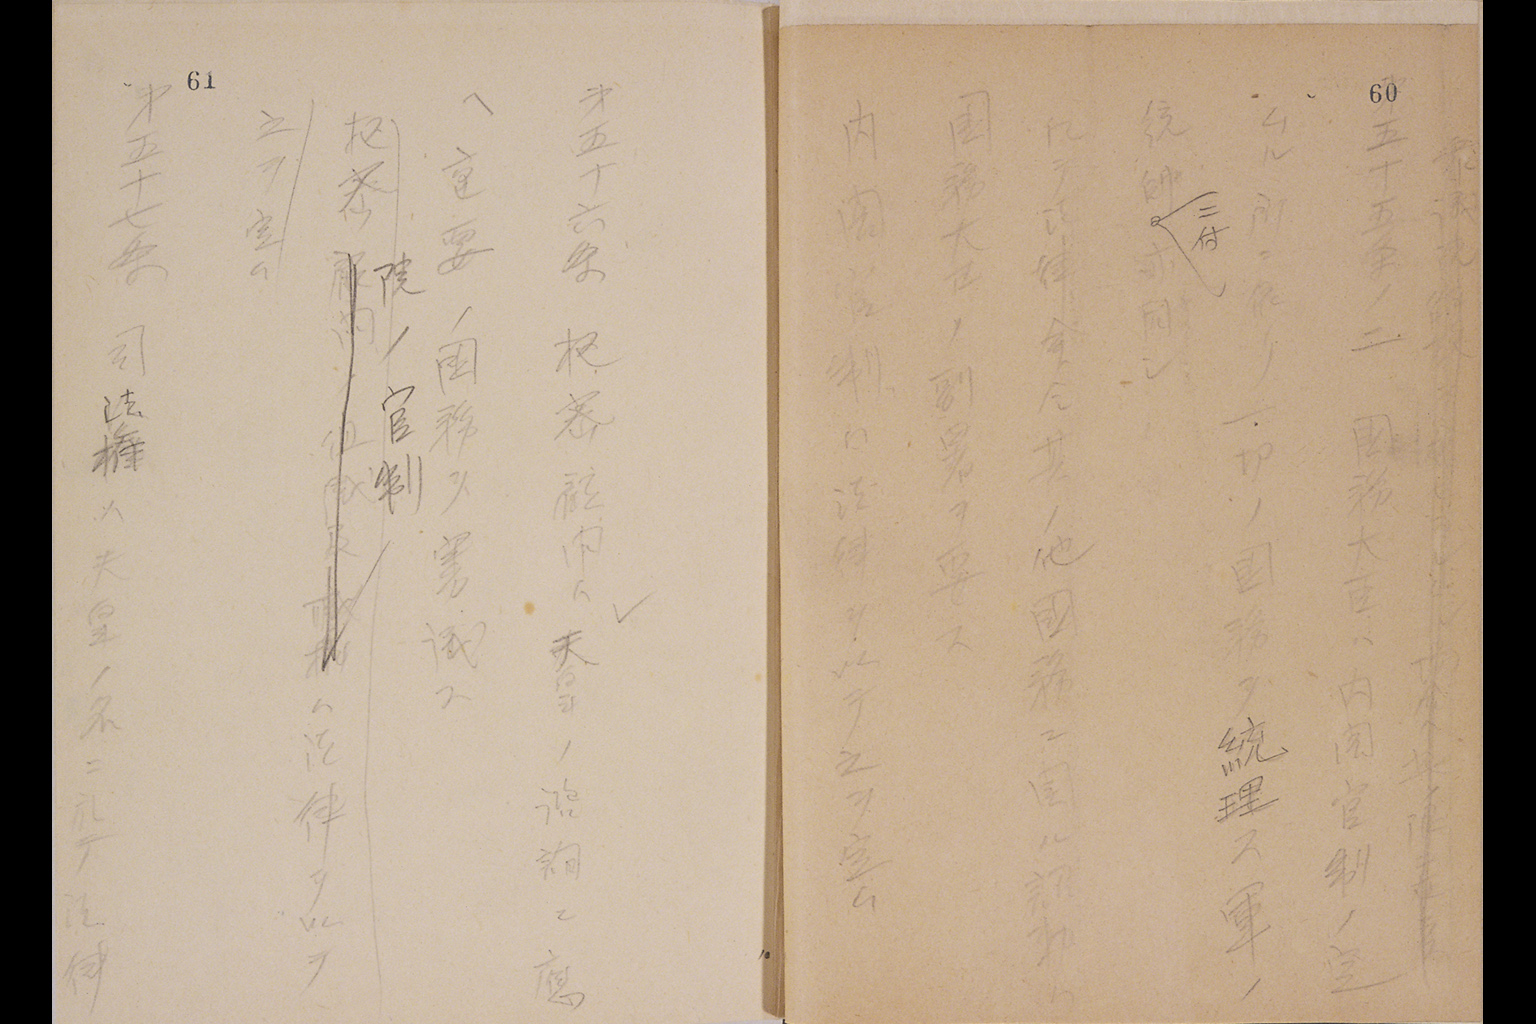 60
第五十五条ノ二 国務大臣ハ内閣官制ノ定
ムル所ニ依リ一切ノ国務ヲ統理ス軍ノ
統帥亦同シ
ニ付
凡テ法律勅令其ノ他國務ニ関ル詔勅ハ
国務大臣ノ副署ヲ要ス
内閣官制ハ法律ヲ以テ之ヲ定ム
61
第五十六条 枢密顧問ハ天皇ノ諮詢ニ應
ヘ重要ノ国務ヲ審議ス
院ノ官制
枢密顧問ノ組織及職権ハ法律ヲ以テ
之ヲ定ム
第五十七条 司法権ハ天皇ノ名ニ於テ法律